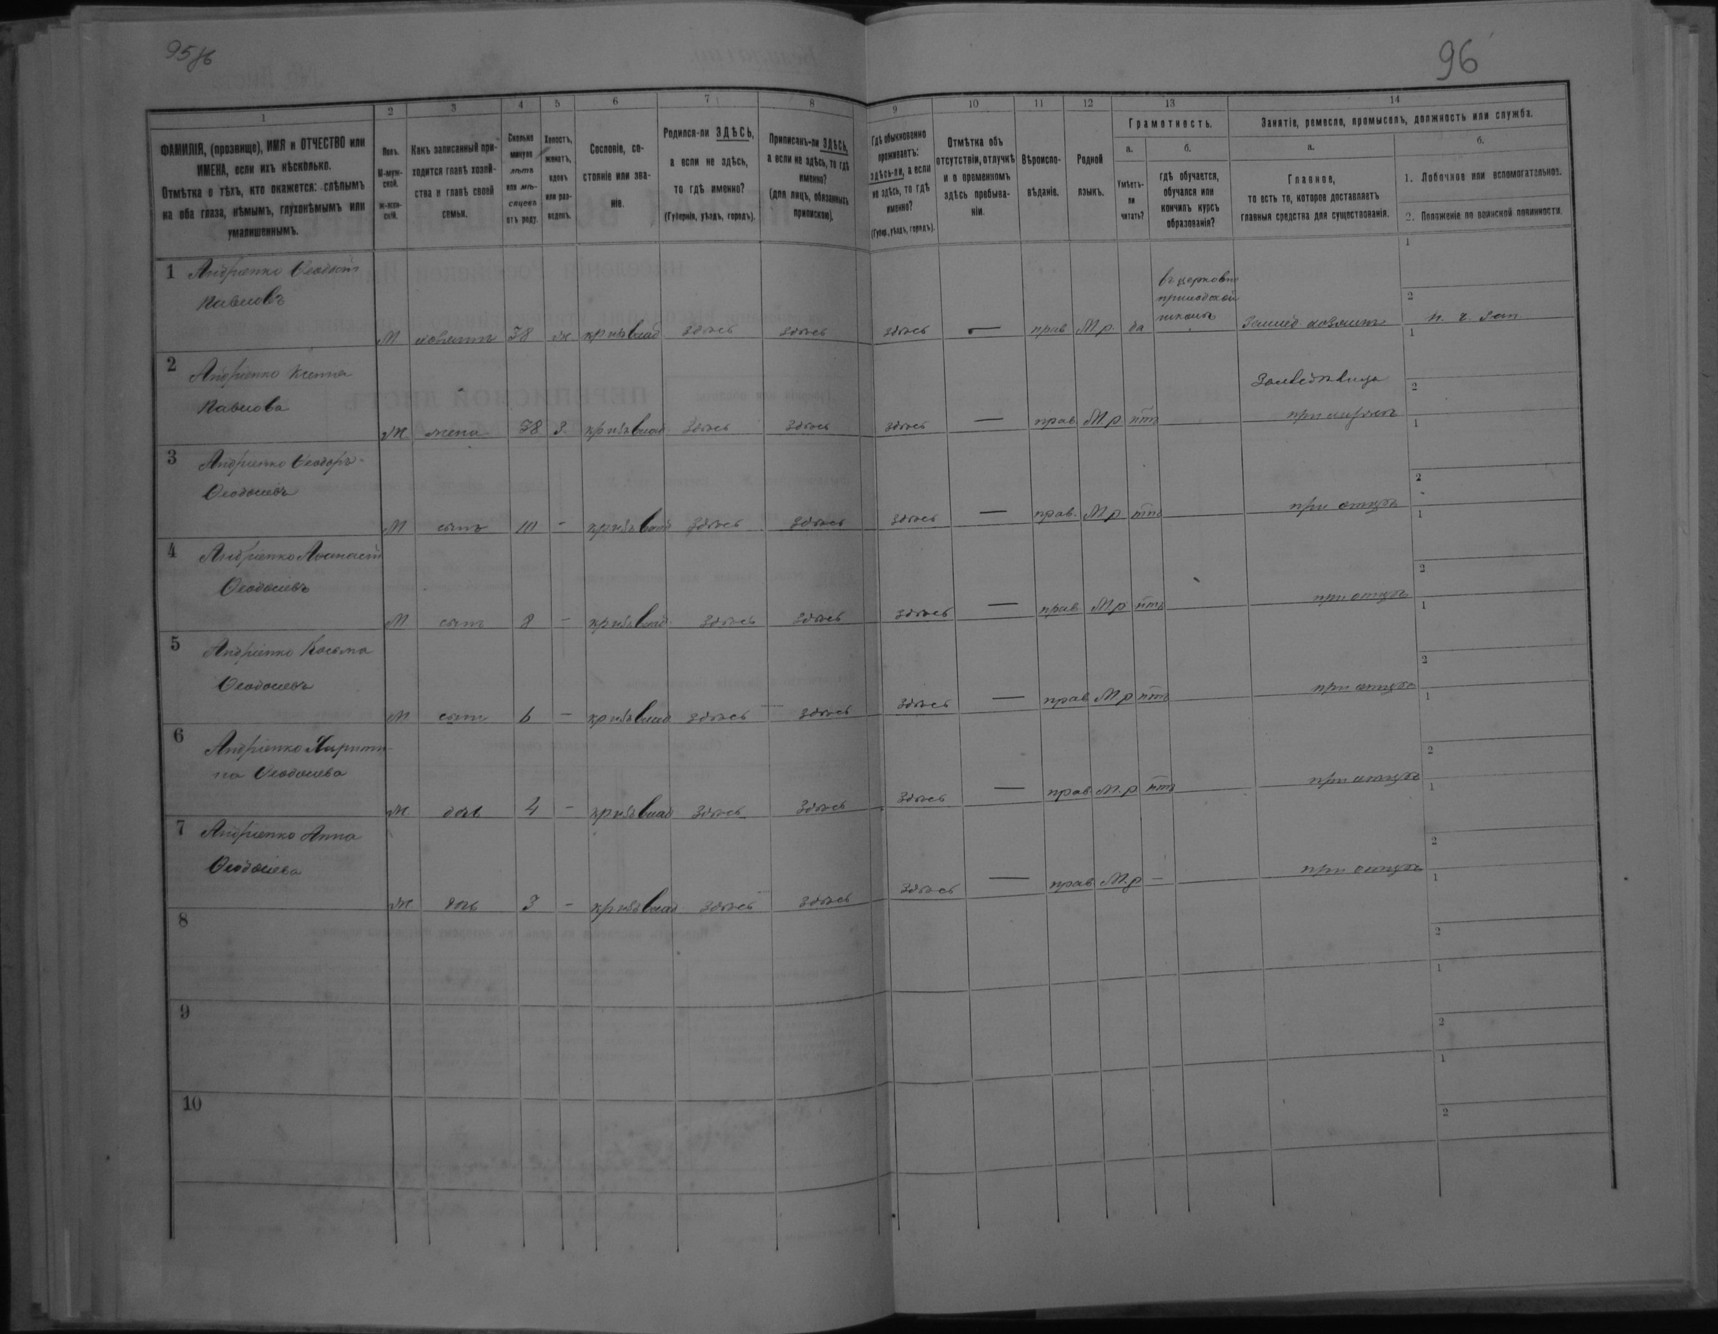 95об
96
1
2
3
4
5
6
7
8
9
10
11
12
13
14
ФАМИЛІЯ, (прозвище), ИМЯ и ОТЧЕСТВО или
ИМЕНА, если ихъ нѣсколько.
Отмѣтка о тѣхъ, кто окажется: слѣпымъ
на оба глаза, нѣмымъ, глухонѣмымъ или
умалишеннымъ.
Полъ.
М-муж-
ской.
Ж-жен-
скій.
Какъ записанный при-
ходится главѣ хозяй-
ства и главѣ своей
семьи.
Сколько
минуло
лѣтъ
или мѣ-
сяцевъ
отъ роду.
Холостъ,
женатъ,
вдовъ
или раз-
веденъ.
Сословіе, со-
стояніе или зва-
ніе.
Родился-ли ЗДѢСЬ,
а если не здѣсь,
то гдѣ именно?
(Губернія, уѣздъ, городъ).
Приписанъ-ли ЗДѢСЬ,
а если не здѣсь, то гдѣ
именно?
(для лицъ, обязанныхъ
припискою).
Гдѣ обыкновенно
проживаетъ:
здѣсь-ли, а если
не здѣсь, то гдѣ
именно?
(Губер., уѣздъ, городъ).
Отмѣтка объ
отсутствіи, отлучкѣ
и о временномъ
здѣсь пребыва-
ніи.
Вѣроиспо-
вѣданіе.
Родной
языкъ.
Грамотность.
а.
Умѣетъ-
ли
читать?
б.
гдѣ обучается,
обучался или
кончилъ курсъ
образованія?
Занятіе, ремесло, промыселъ, должность или служба.
а.
Главное,
то есть то, которое доставляетъ
главныя средства для существованія.
б.
1. Побочное или вспомогательное.
2. Положеніе по воинской повинности.
1 Андріенко Ѳеодосій
Павловъ
М хозяинъ 38 ж кр из влад здѣсь здѣсь здѣсь — прав М.р. да
въ церковно
приходской
школѣ
Землед хозяинъ
2 Андріенко Ксенія
Павлова
Ж жена 38 З. кр из влад здѣсь здѣсь здѣсь — прав М.р нѣтъ
при мужѣ
3 Андріенко Ѳеодоръ
Ѳеодосіевъ
М сынъ 10 — кр из влад здѣсь здѣсь здѣсь — прав. М.р нѣтъ при отцѣ
4 Андріенко Аѳанасій
Ѳеодосіевъ
М сынъ 8 — кр из влад здѣсь здѣсь здѣсь — прав М.р нѣтъ при отцѣ
5 Андріенко Косьма
Ѳеодосіевъ
М сынъ 6 — кр из влад здѣсь здѣсь здѣсь — прав М.р нѣтъ при отцѣ
6 Андріенко
на Ѳеодосіева
Ж дочь 4 — кр из влад здѣсь здѣсь здѣсь — прав М.р нѣтъ при отцѣ
7 Андріенко Анна
Ѳеодосіева
Ж дочь 3 — кр из влад здѣсь здѣсь здѣсь — прав М.р — при отцѣ
8
9
10